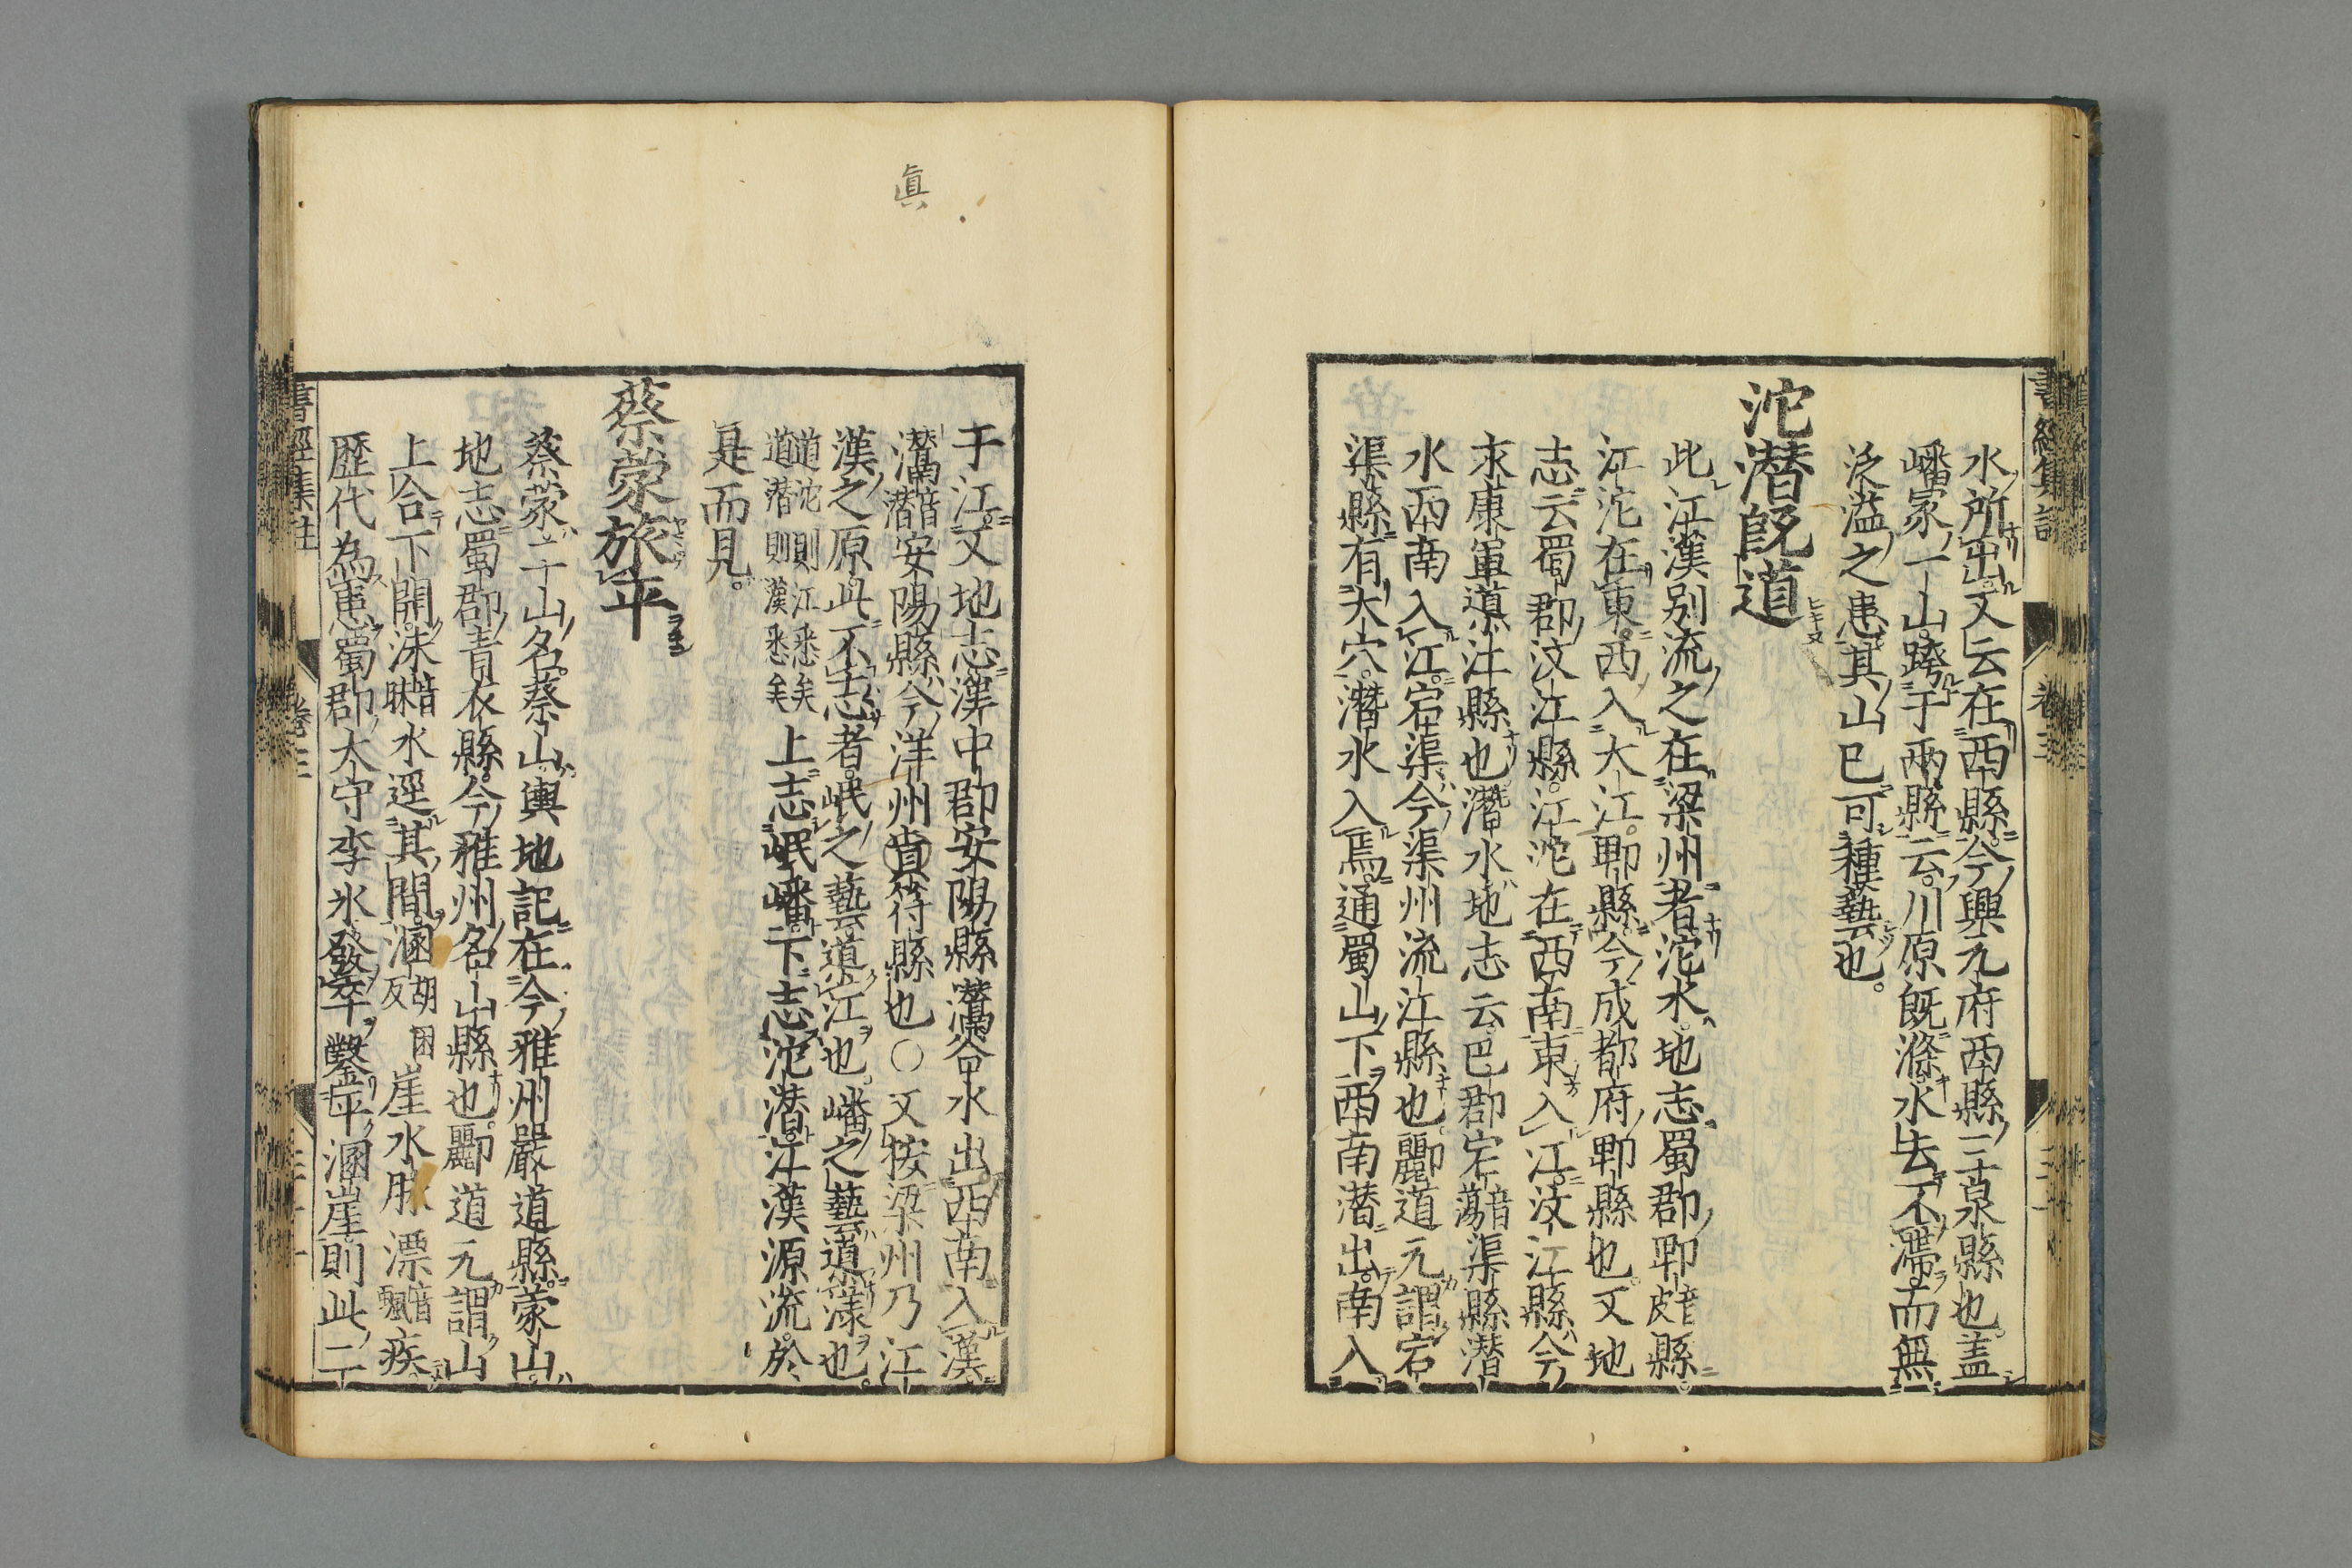 書經集註 卷三
水所出又云在西縣今興元府西縣三泉縣也盖
嶓冢一山跨于兩縣云川原旣滌水去不滯而無
泛溢之患其山已可種藝也。
沱潛旣道
此江漢別流之在梁州者沱水地志蜀郡郫音皮縣
江沱在東西入大江郫縣今成都府郫縣也又地
志云蜀郡汶江縣江沱在西南東入江汶江縣今
永康軍導江縣也潛水地志云巴郡宕音蕩渠縣潛
水西南入江宕渠今渠州流江縣也酈道元謂宕
渠縣有大穴潛水入焉通蜀山下西南潛出南入
眞
于江又地志漢中郡安陽縣灊谷水出西南入漢
灊音潛安陽縣今洋州真符縣也〇又按梁州乃江
漢之原此不志者岷之藝導江也嶓之藝導漾也
道沱則江悉矣道潛則漢悉矣上志岷嶓下志沱潛江漢源流於
是而見。
蔡蒙旅平
蔡蒙二山名蔡山輿地記在今雅州嚴道縣蒙山
地志蜀郡青衣縣今雅州名山縣也酈道元謂山
上合下開沫音昧水逕其間溷胡困反崖水脉漂音飄疾
歷代為患蜀郡太守李氷發卒鑿平溷崖則此二
書經集註 卷三